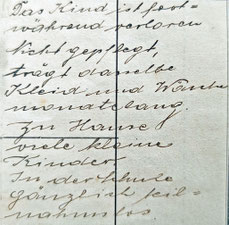 Das Kind ist fort-
während verloren
Nicht gepflegt,
trägt dasselbe
Kleid und Wäsche
monatelang.
Zu Hause
viele kleine
Kinder
In der Schule
gänzlich teil-
nahmslos